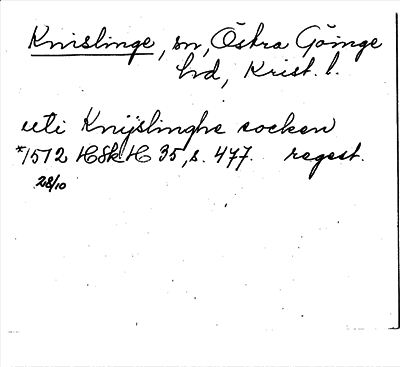 Knislinge, sn, Östra Göinge
hd, Krist. l.
uti Knijslinghe socken
*1572 HSkH 35, s. 477. regest.
28/10